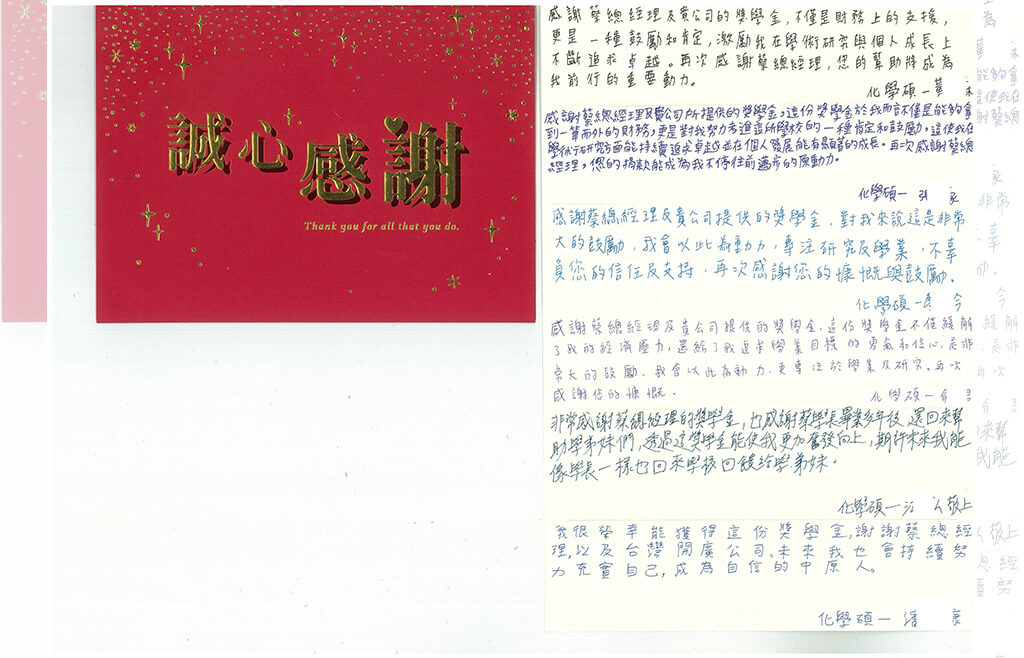 誠心感謝
Thank you for all that you do.
感謝蔡總經理及貴公司的獎學金,不僅是財務上的支援,
更是一種鼓勵和肯定,激勵我在學術研究與個人成長上
不斷追求卓越。再次感謝蔡總經理,您的幫助將成為
我前行的重要動力。
化學碩一 葉
感謝蔡總經理及貴公司所提供的獎學金,這份獎學金於我而言不僅是能夠拿
到一筆額外的財務,更是對我努力考進這所學校的一種肯定和鼓勵,這使我在
學術研究方面能持續追求卓越並在個人發展能有顯著的成長。再次感謝蔡總
經理,您的捐款能成為我不停往前邁步的原動力。
化學碩一 張
感謝蔡總經理及貴公司提供的獎學金,對我來說這是非常
大的鼓勵,我會以此為動力,專注研究及學業,不辜
負您的信任及支持,再次感謝您的慷慨與鼓勵.
化學碩一 今
感謝蔡總經理及貴公司提供的獎學金,這份獎學金不僅緩解
了我的經濟壓力,還給了我追求學業目標的勇氣和信心,是非
常大的鼓勵.我會以此為動力.更專注於學業及研究.再次
感謝您的慷慨.
化學碩一 余 君
非常感謝蔡總經理的獎學金,也感謝蔡學長畢業多年後,還回來幫
助學弟妹們,透過這獎學金能使我更加奮發向上,期許未來我能
像學長一樣也回來學校回饋給學弟妹.
化學碩一 江 敬上
我很榮幸能獲得這份獎學金,謝謝蔡總經
理,以及台灣開廣公司。未來我也會持續努
力充實自己,成為自信的中原人。
化學碩一 潘